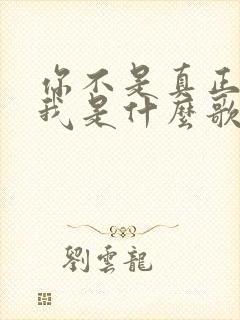 你不是真正
我是什麼歌
劉雲龍